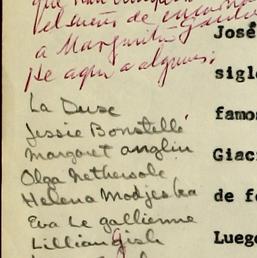 el sueño de encarnar
a Margarita Gautier
He aquí a algunas:
La Duse
Jessie Bonstelle
Margaret Anglin
Olga Nethersole
Helena Modjeska
Eva Le Gallienne
Lillian Gish
José
siglo
famo
Giac
de fo
Luego